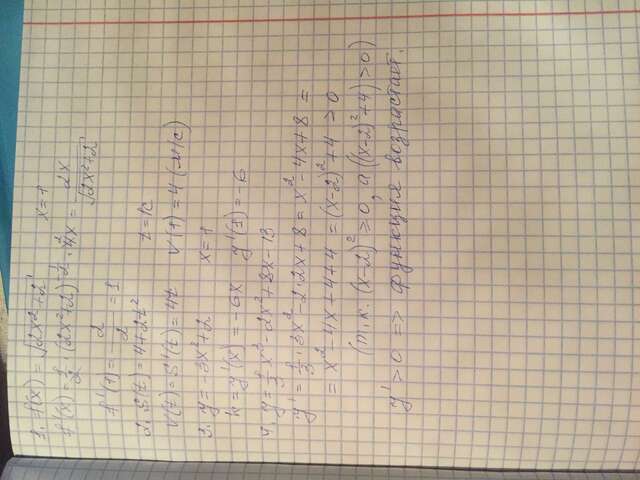 1. f(x) = √(2x²+2) x=1
f'(x) = 1/2 · (2x²+2)^(-1/2) · 4x = 2x/√(2x²+2)
f'(1) = 2/2 = 1
2. S(t) = 4+2t² t=1c
V(t) = S'(t) = 4t V(1) = 4 (м/с)
3. y = -3x²+2 x=1
k = y'(x) = -6x y'(1) = -6
4. y = 1/3 x³ - 2x² + 8x - 13
y' = 1/3 · 3x² - 2·2x + 8 = x² - 4x + 8 =
= x² - 4x + 4 + 4 = (x-2)² + 4 > 0
(т.к. (x-2)² ≥ 0, а ((x-2)² + 4) > 0)
y' > 0 => функция возрастает.